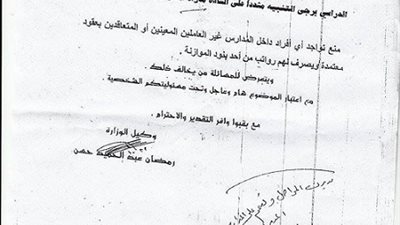 الدراسي يرجى التنبيه مشدداً على السادة
منع تواجد أي أفراد داخل المدارس غير العاملين المعينين أو المتعاقدين بعقود
معتمدة ويصرف لهم رواتب من أحد بنود الموازنة .
ويتعرض للمسائلة من يخالف ذلك.
مع اعتبار الموضوع هام وعاجل وتحت مسئوليتكم الشخصية
مع بقبوا وافر التقدير والاحترام .
وكيل الوزارة
رمضان عبد الحميد حسن